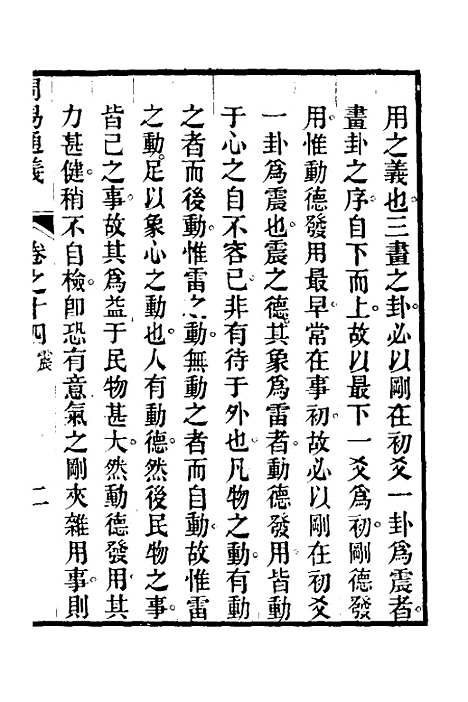 用之義也三畫之卦必以剛在初爻一卦爲震者。
畫卦之序自下而上。故以最下一爻爲初剛德發
用。惟動德發用最早常在事初。故必以剛在初爻
一卦爲震也。震之德其象爲雷者。動德發用皆動
于心之自不容已非有待于外也。凡物之動。有動
之者而後動。惟雷之動。無動之者而自動。故惟雷
之動。足以象心之動也。人有動德。然後民物之事。
皆己之事。故其爲益于民物甚大。然動德發用其
力甚健。稍不自檢。卽恐有意氣之剛夾雜用事。則
周易通義
卷之十四 震
二